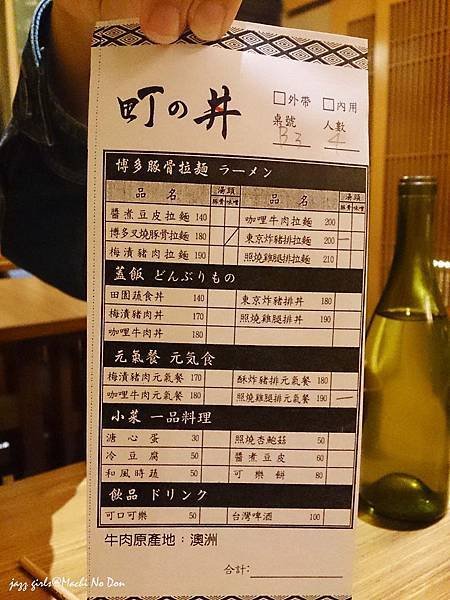 町の丼
□外帶 □內用
桌號 人數
B3 4
博多豚骨拉麵 ラーメン
品名 湯頭 豚骨 味噌 品名 湯頭 豚骨 味噌
醬煮豆皮拉麵 140 咖哩牛肉拉麵 200
博多叉燒豚骨拉麵 180 東京炸豬排拉麵 200
梅漬豬肉拉麵 190 照燒雞腿排拉麵 210
蓋飯 どんぶりもの
田園蔬食丼 140 東京炸豬排丼 180
梅漬豬肉丼 170 照燒雞腿排丼 190
咖哩牛肉丼 180
元氣餐 元気食
梅漬豬肉元氣餐 170 酥炸豬排元氣餐 180
咖哩牛肉元氣餐 180 照燒雞腿排元氣餐 190
小菜 一品料理
溏心蛋 30 照燒杏鮑菇 50
冷豆腐 50 醬煮豆皮 60
和風時蔬 50 可樂餅 80
飲品 ドリンク
可口可樂 50 台灣啤酒 100
牛肉原產地：澳洲
合計:
jazz girls@Machi No Don